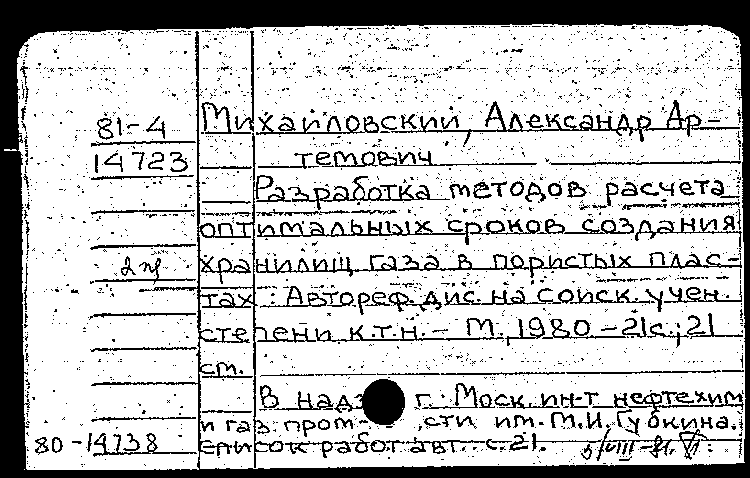 81-4 Михайловский, Александр Ар-
14723 темович
Разработка методов расчета
оптимальных сроков создания
2 хранилищ газа в пористых плас-
тах: Автореф. дис. на соиск. учен.
степени к.т.н. - М., 1980 - 21с.; 21
см.
В надз г.: Моск. ин-т нефтехим
и газ. пром- сти им. М.И. Губкина.
80-14738 Список работ авт. с. 21. 5/VIII-81.